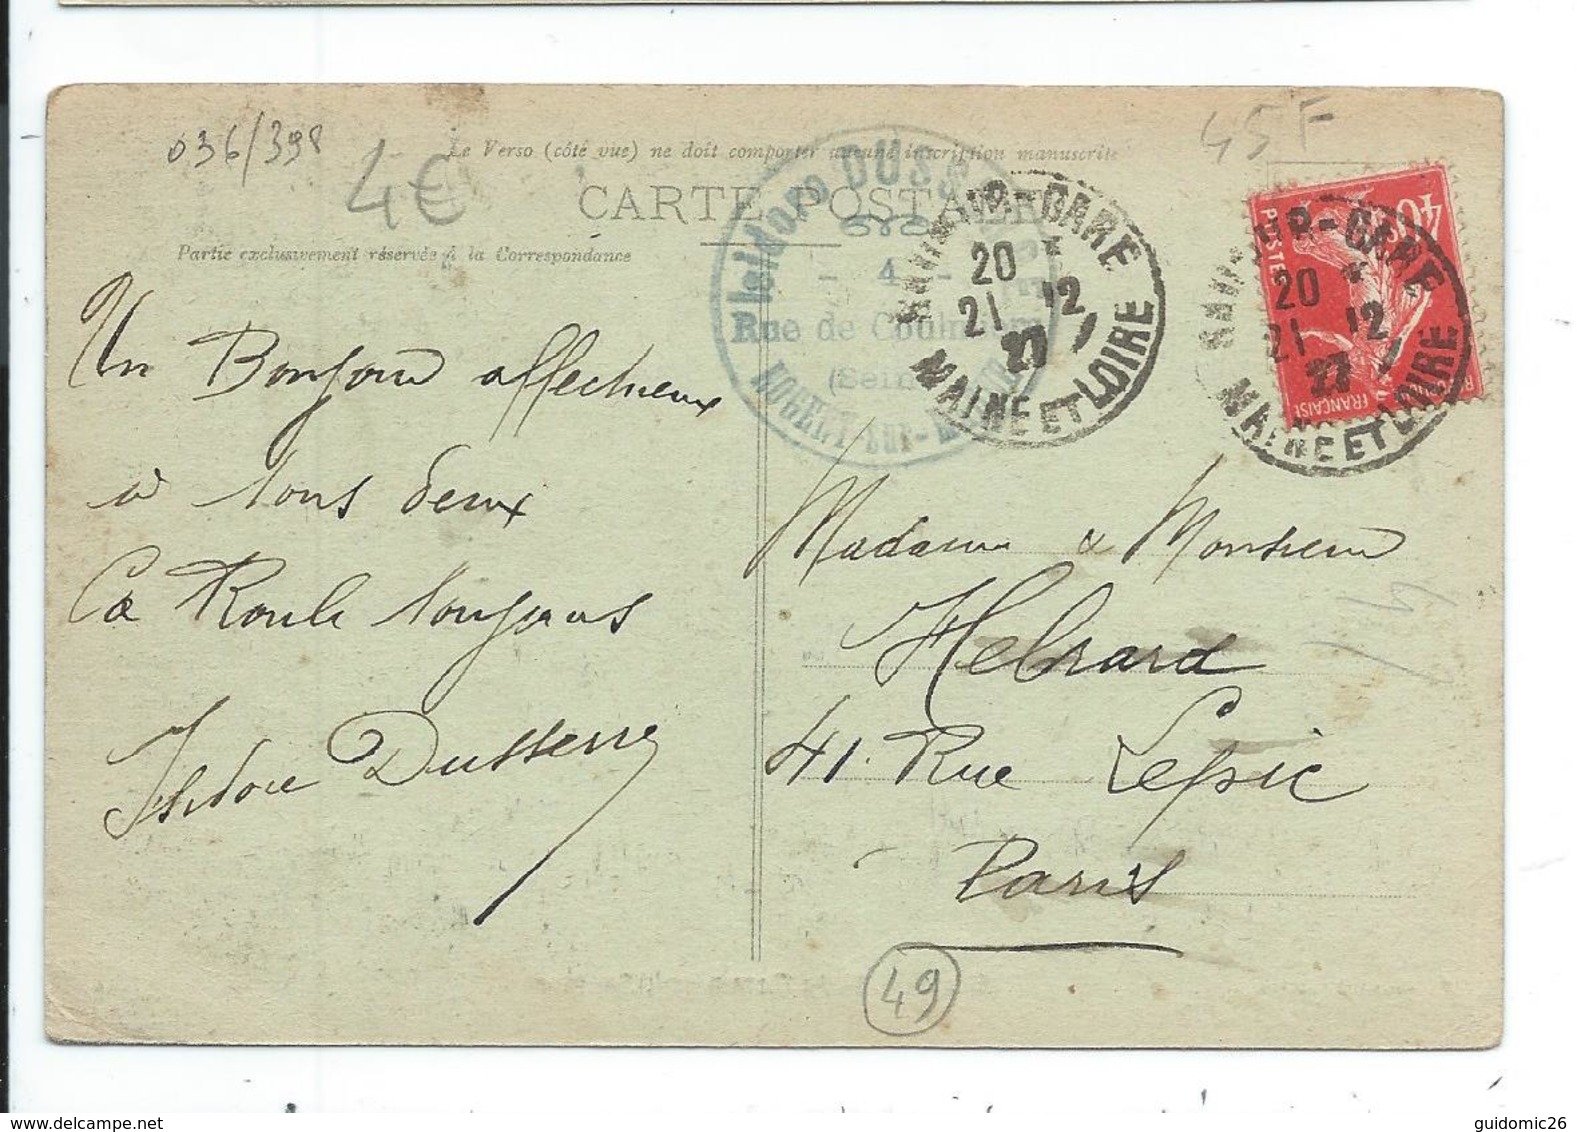 036/398
4€
45F
Le Verso (côté vue) ne doit comporter aucune inscription manuscrite
CARTE POSTALE
Partie exclusivement réservée à la Correspondance
Isidore DUSS
- 4 -
Rue de Coulm
(Sein
NOGENT-sur-M
-GARE
20 *
21 -12
27
MAINE ET LOIRE
-GARE
20 *
21 -12
27
MAINE ET LOIRE
40
POSTES
FRANÇAISE
Un Bonjour affectueux
à tous deux
Ca Roule toujours
Isidore Dusserre
Madame & Monsieur
Hebrard
41. Rue Lepic
Paris
49
guidomic26